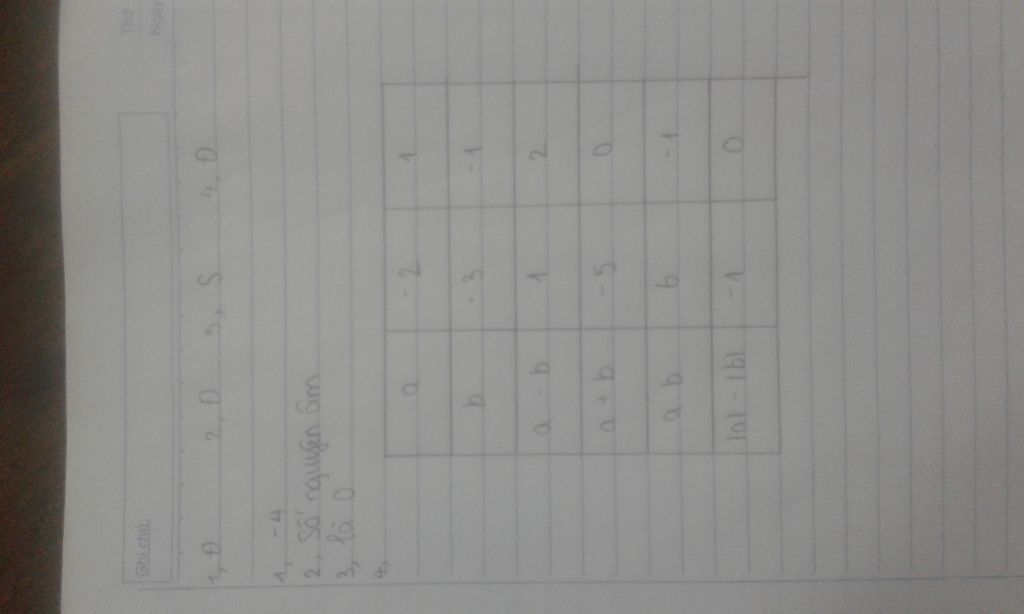 Thứ
Ngày
Ghi chú:
1, Đ 2, Đ 3, S 4, Đ
1, -4
2, Số nguyên âm
3, là 0
4,
a -2 1
b -3 -1
a - b 1 2
a + b -5 0
a.b 6 -1
|a| - |b| -1 0